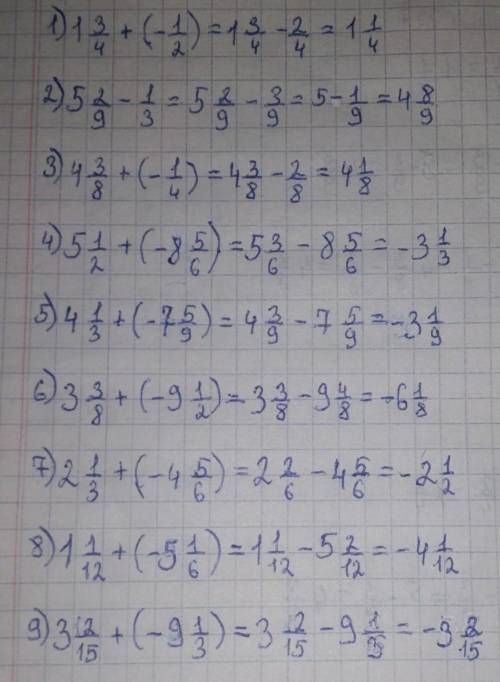 1) 1 3/4 + (- 1/2) = 1 3/4 - 2/4 = 1 1/4
2) 5 2/9 - 1/3 = 5 2/9 - 3/9 = 5 - 1/9 = 4 8/9
3) 4 3/8 + (- 1/4) = 4 3/8 - 2/8 = 4 1/8
4) 5 1/2 + (-8 5/6) = 5 3/6 - 8 5/6 = -3 1/3
5) 4 1/3 + (-7 5/9) = 4 3/9 - 7 5/9 = -3 1/9
6) 3 3/8 + (-9 1/2) = 3 3/8 - 9 4/8 = -6 1/8
7) 2 1/3 + (-4 5/6) = 2 2/6 - 4 5/6 = -2 1/2
8) 1 1/12 + (-5 1/6) = 1 1/12 - 5 2/12 = -4 1/12
9) 3 2/15 + (-9 1/3) = 3 2/15 - 9 1/3 = -9 2/15